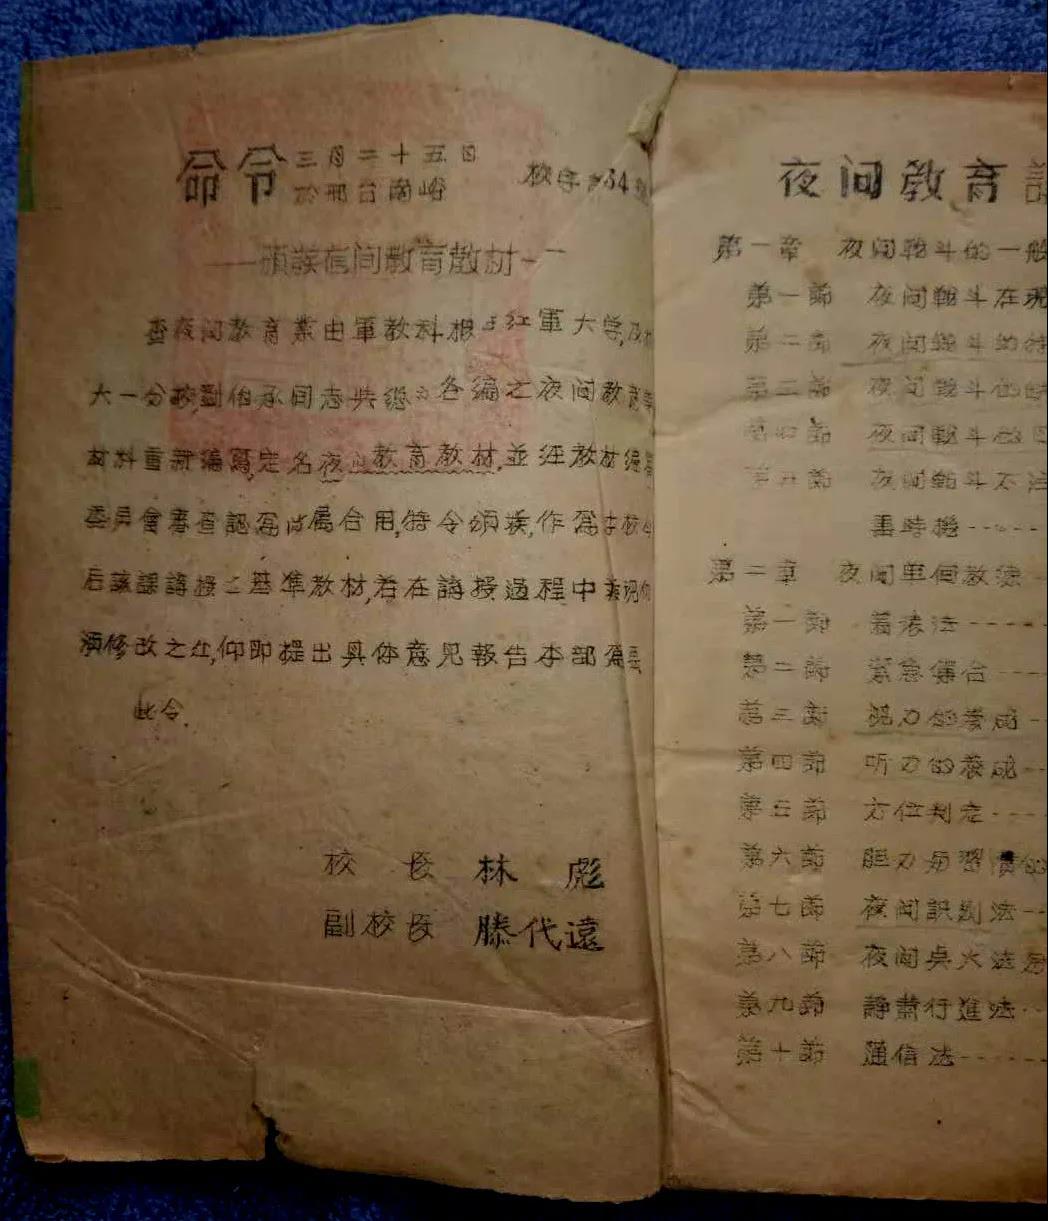 命令 三月二十五日
於邢台南峪
校字 34
—頒發夜间教育教材—
查夜间教育業由軍教科根 红軍大学,及
大一分校劉伯承同志共總 各編之夜间教育
材料重新編寫,定名夜 教育教材,並经教材編
委員會審查認為 屬合用,特令頒發,作為本校
后該課講授之基準教材,若在講授過程中發现
須修改之処,仰即提出具体意見報告本部為要
此令.
校長 林彪
副校長 滕代遠
夜间教育
第一章 夜间戰斗的一般
第一節 夜间戰斗在现
第二節 夜间戰斗的特
第三節 夜间戰斗的
第四節 夜间戰斗的
第五節 夜间戰斗不
重時機----
第二章 夜间單個教練--
第一節 著装法-----
第二節 緊急集合---
第三節 視力的養成--
第四節 听力的養成--
第五節 方位判定----
第六節 胆力与習慣的
第七節 夜间識别法--
第八節 夜间 火法
第九節 静肅行進法--
第十節 通信法-----